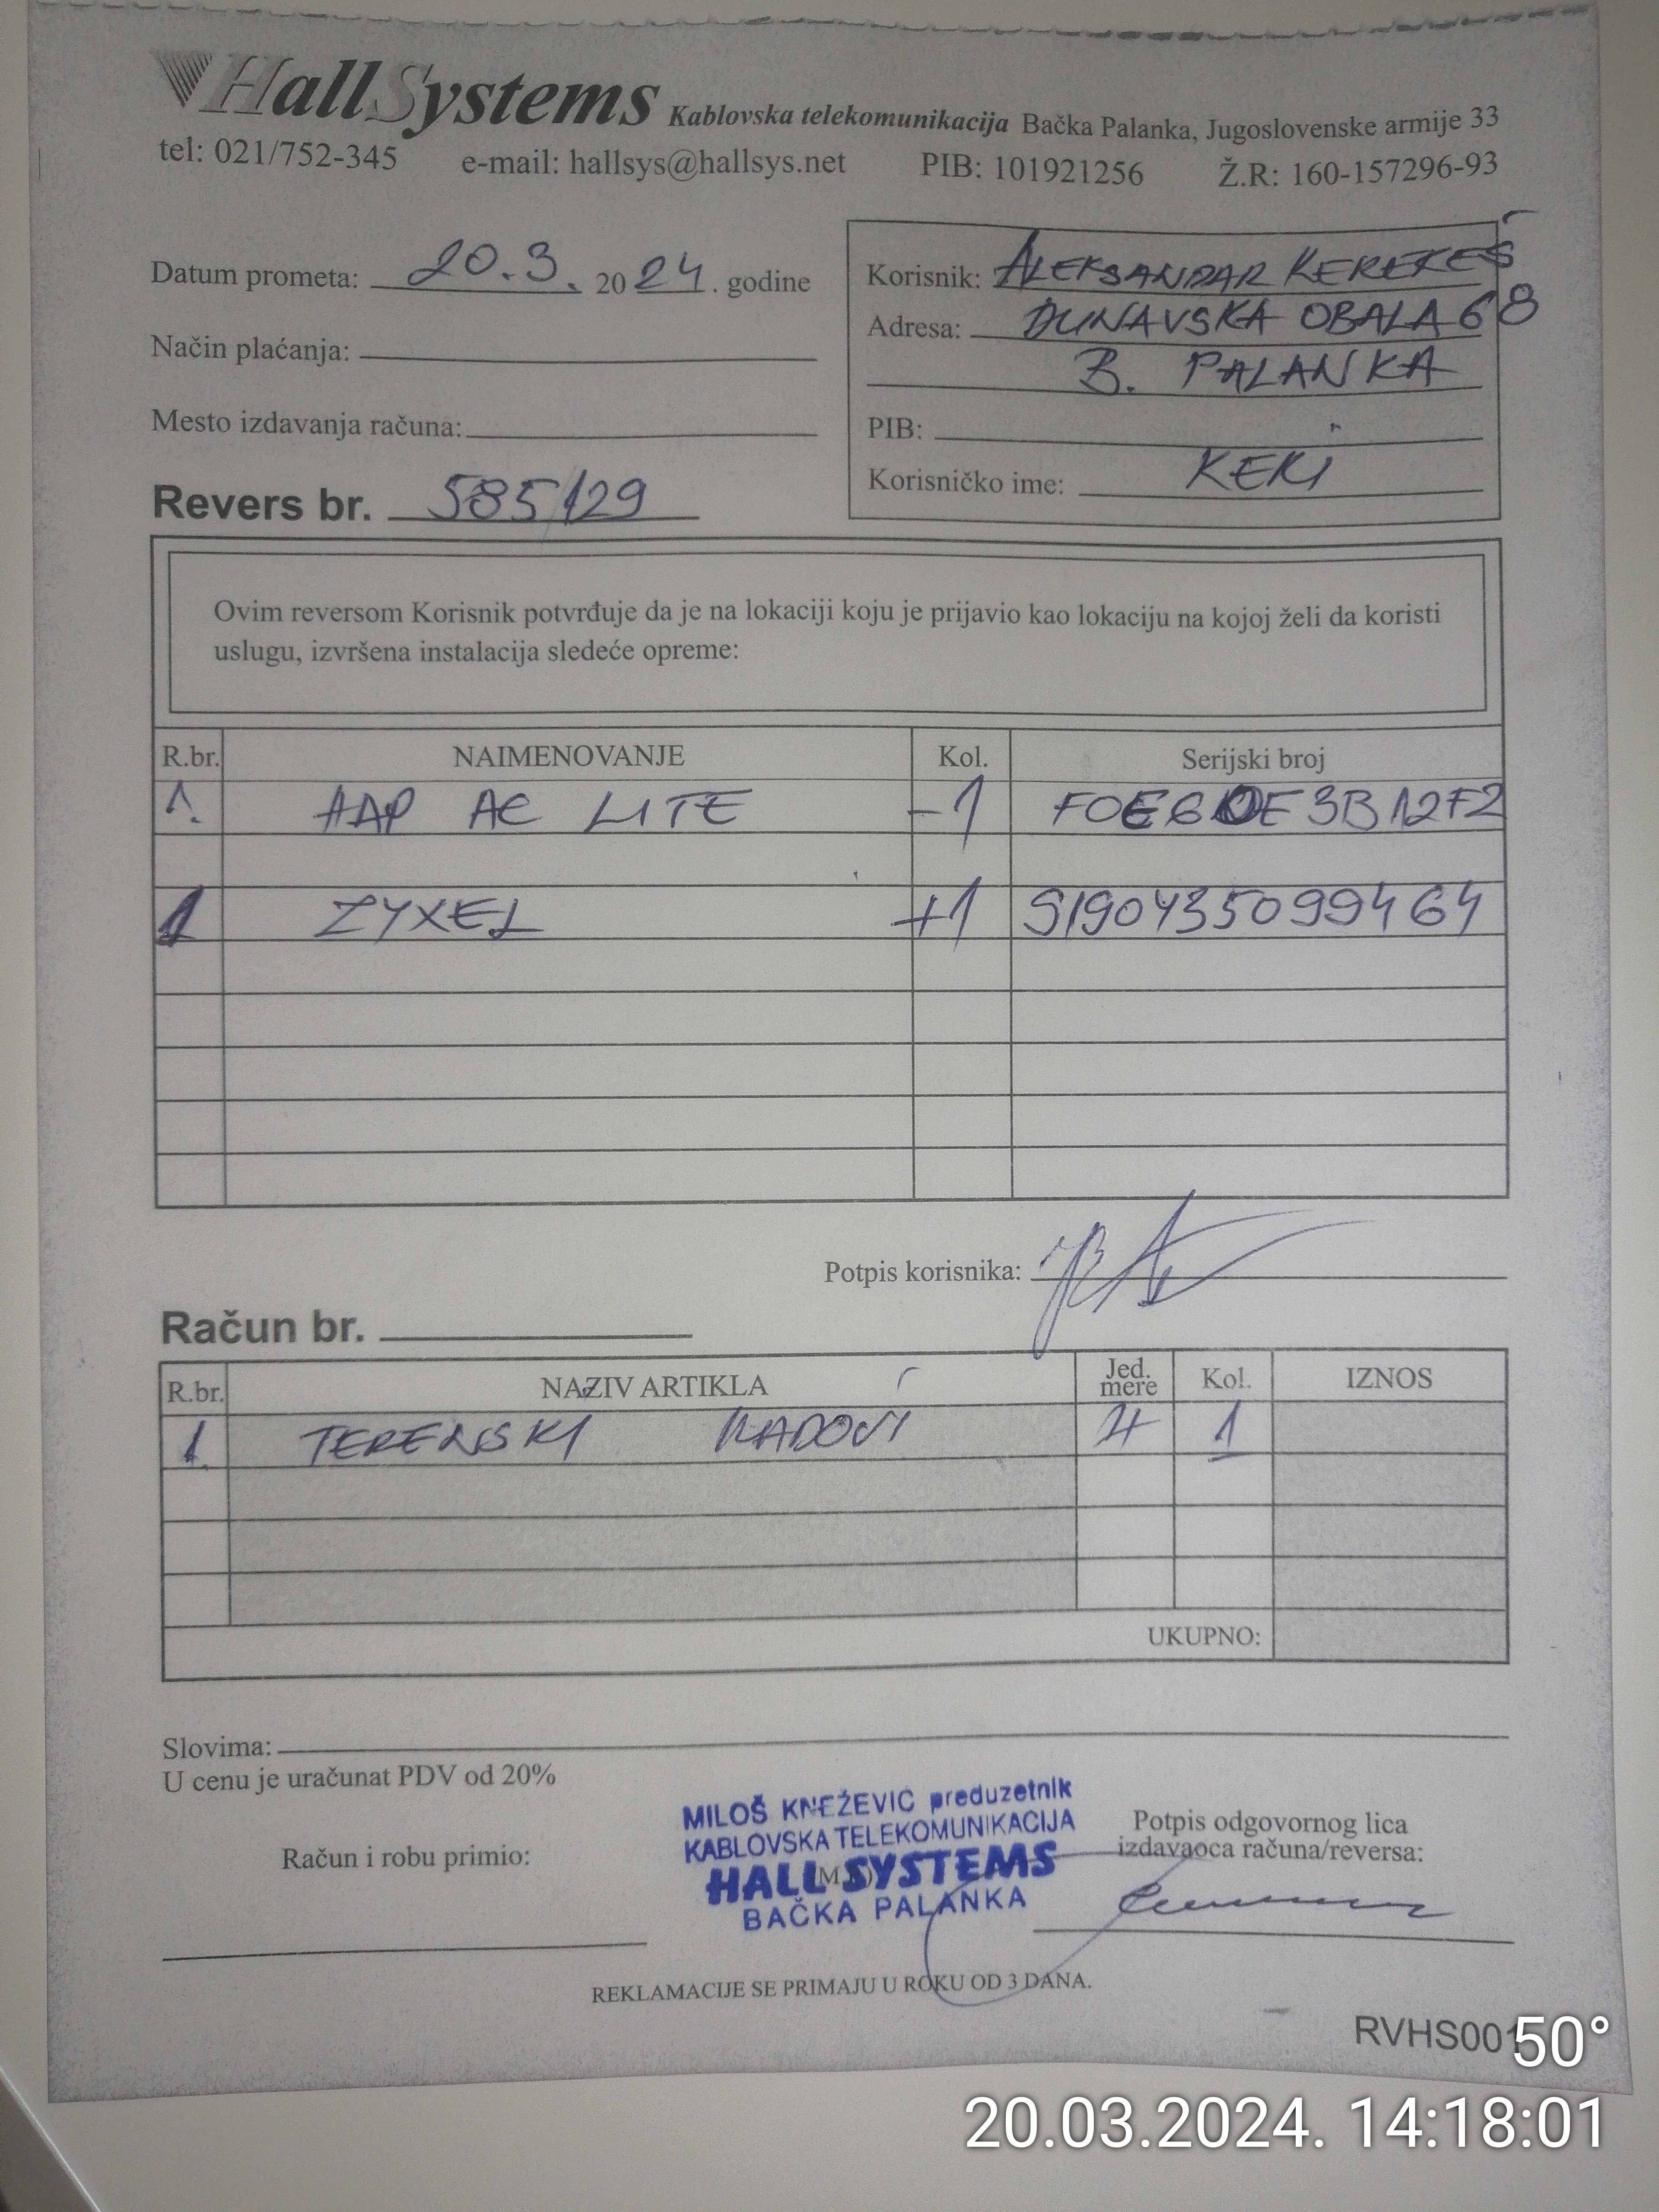 HallSystems Kablovska telekomunikacija Bačka Palanka, Jugoslovenske armije 33
tel: 021/752-345 e-mail: hallsys@hallsys.net PIB: 101921256 Ž.R: 160-157296-93
Datum prometa: 20.3. 2024. godine
Način plaćanja:
Mesto izdavanja računa:
Revers br. 585/129
Korisnik: ALEKSANDAR KEREKEŠ
Adresa: DUNAVSKA OBALA 68
B. PALANKA
PIB:
Korisničko ime: KEKI
Ovim reversom Korisnik potvrđuje da je na lokaciji koju je prijavio kao lokaciju na kojoj želi da koristi
uslugu, izvršena instalacija sledeće opreme:
R.br. NAIMENOVANJE Kol. Serijski broj
1. HAP AC LITE -1
1 ZYXEL +1 S190Y35099464
Potpis korisnika:
Račun br.
R.br. NAZIV ARTIKLA Jed. mere Kol. IZNOS
1. TERENSKI RADOVI 1
UKUPNO:
Slovima:
U cenu je uračunat PDV od 20%
Račun i robu primio:
MILOŠ KNEŽEVIĆ preduzetnik
KABLOVSKA TELEKOMUNIKACIJA
HALL SYSTEMS
BAČKA PALANKA
Potpis odgovornog lica
izdavaoca računa/reversa:
REKLAMACIJE SE PRIMAJU U ROKU OD 3 DANA.
RVHS001
50°
20.03.2024. 14:18:01